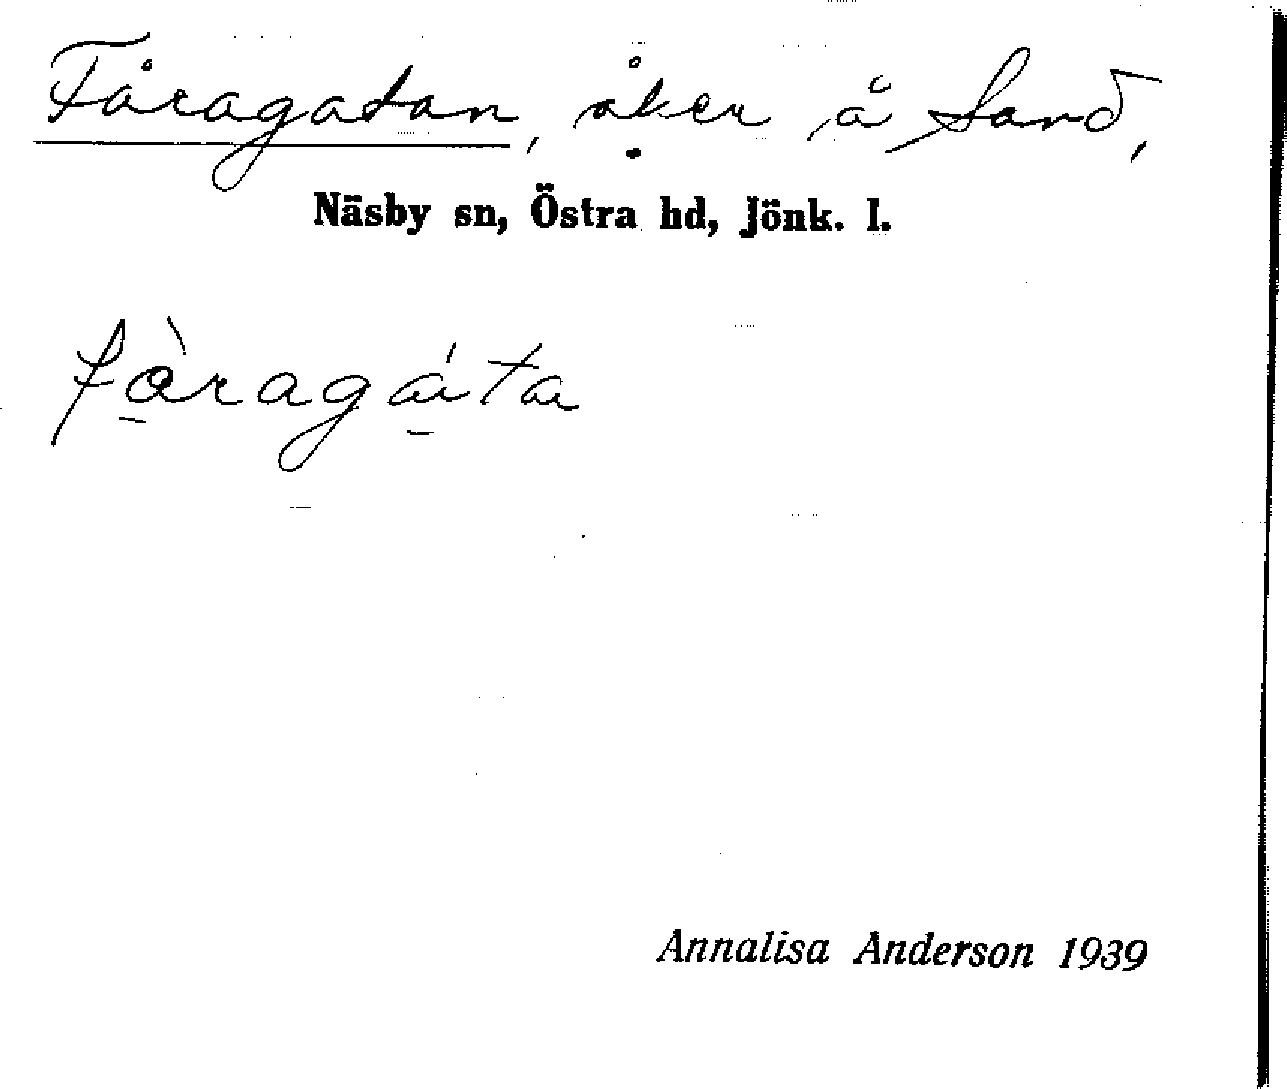 Fåragatan, åker å Sand,
Näsby sn, Östra hd, Jönk. l.
fàragáta
Annalisa Anderson 1939